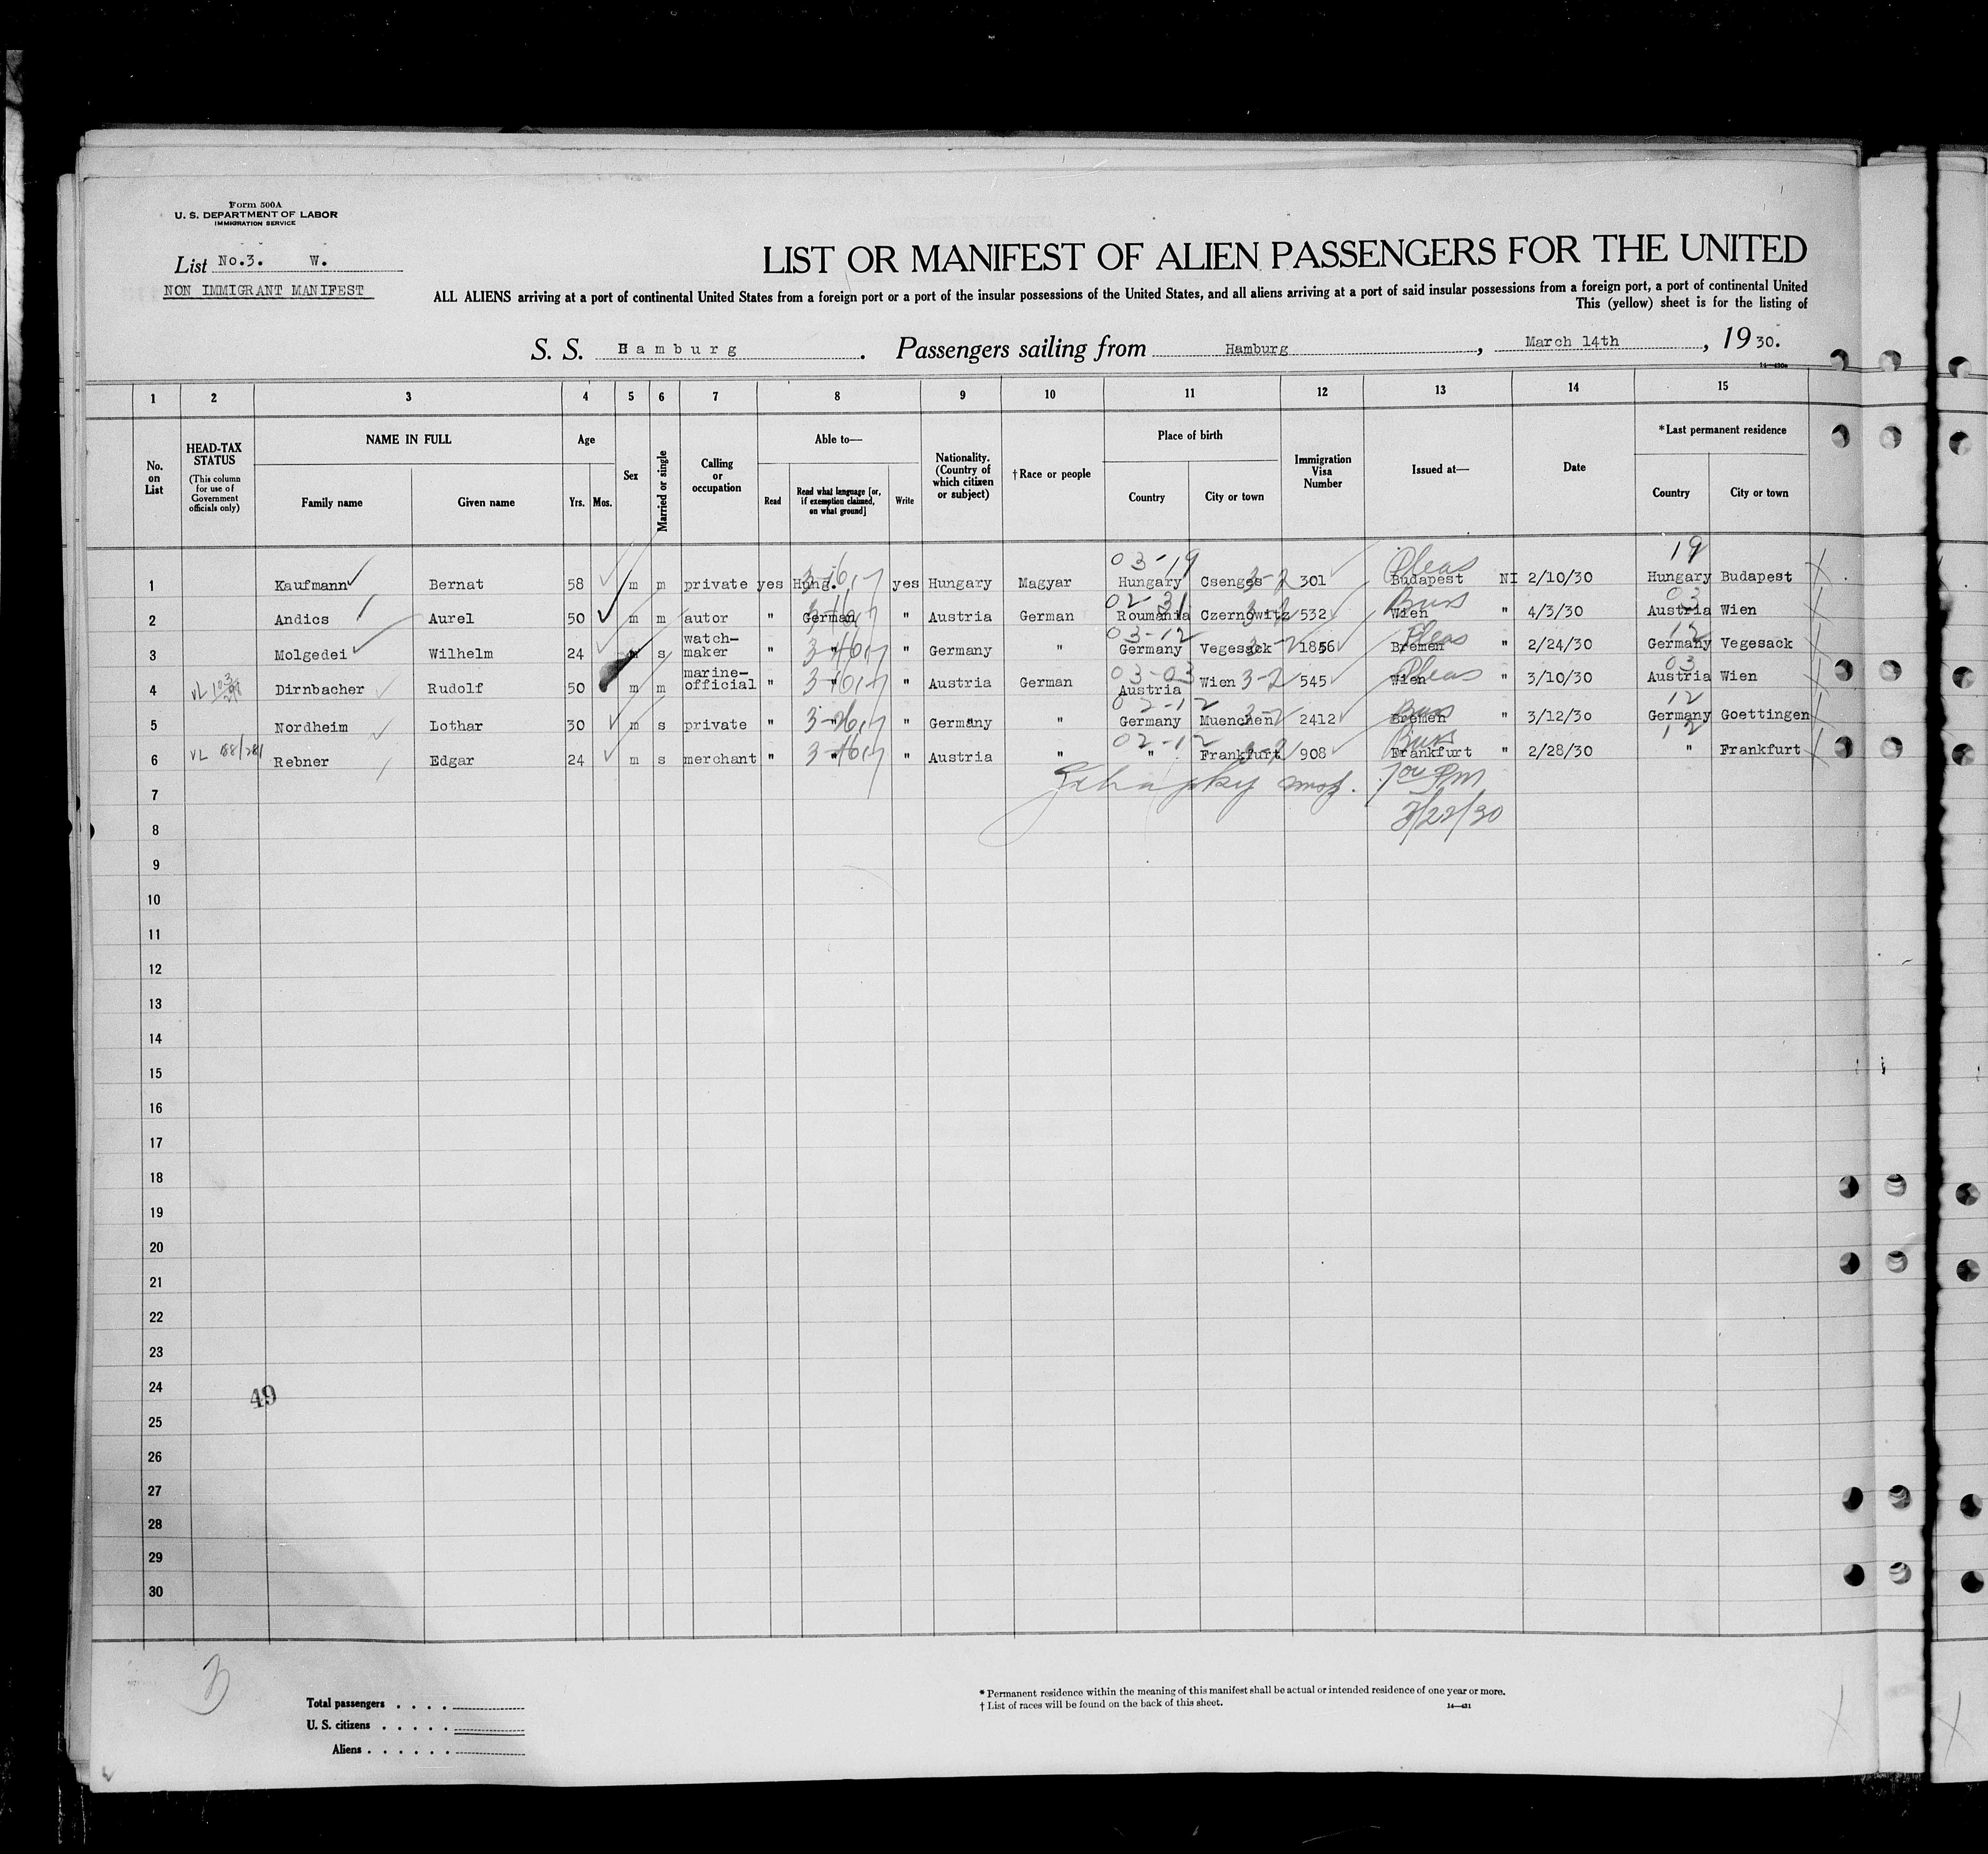 Form 500A
U. S. DEPARTMENT OF LABOR
IMMIGRATION SERVICE
List No.3. W.
NON IMMIGRANT MANIFEST
LIST OR MANIFEST OF ALIEN PASSENGERS FOR THE UNITED
ALL ALIENS arriving at a port of continental United States from a foreign port or a port of the insular possessions of the United States, and all aliens arriving at a port of said insular possessions from a foreign port, a port of continental United
This (yellow) sheet is for the listing of
S. S. Hamburg. Passengers sailing from Hamburg, March 14th, 1930.
14—430a
1 2 3 4 5 6 7 8 9 10 11 12 13 14 15
No. on List
HEAD-TAX STATUS
(This column for use of Government officials only)
NAME IN FULL
Family name Given name
Age
Yrs. Mos.
Sex
Married or single
Calling or occupation
Able to—
Read
Read what language [or, if exemption claimed, on what ground]
Write
Nationality. (Country of which citizen or subject)
†Race or people
Place of birth
Country City or town
Immigration Visa Number
Issued at—
Date
*Last permanent residence
Country City or town
03-19 Pleas 19
1 Kaufmann Bernat 58 m m private yes Hung. yes Hungary Magyar Hungary Csenges 3-2 301 Budapest NI 2/10/30 Hungary Budapest
02-31 03
2 Andics Aurel 50 m m autor " German " Austria German Roumania Czernowitz 532 Wien " 4/3/30 Austria Wien
03-12 Pleas 12
3 Molgedei Wilhelm 24 m s watch-maker " " " Germany " Germany Vegesack 1856 Bremen " 2/24/30 Germany Vegesack
03-03 Pleas 03
4 Dirnbacher Rudolf 50 m m marine-official " " " Austria German Austria Wien 3-2 545 Wien " 3/10/30 Austria Wien
02-12 12
5 Nordheim Lothar 30 m s private " " " Germany " Germany Muenchen 2412 Bremen " 3/12/30 Germany Goettingen
02-12 12
6 Rebner Edgar 24 m s merchant " " " Austria " " Frankfurt 908 Frankfurt " 2/28/30 " Frankfurt
7
3/22/30
8
9
10
11
12
13
14
15
16
17
18
19
20
21
22
23
24
49
25
26
27
28
29
30
3
Total passengers
U. S. citizens
Aliens
* Permanent residence within the meaning of this manifest shall be actual or intended residence of one year or more.
† List of races will be found on the back of this sheet.
14—431